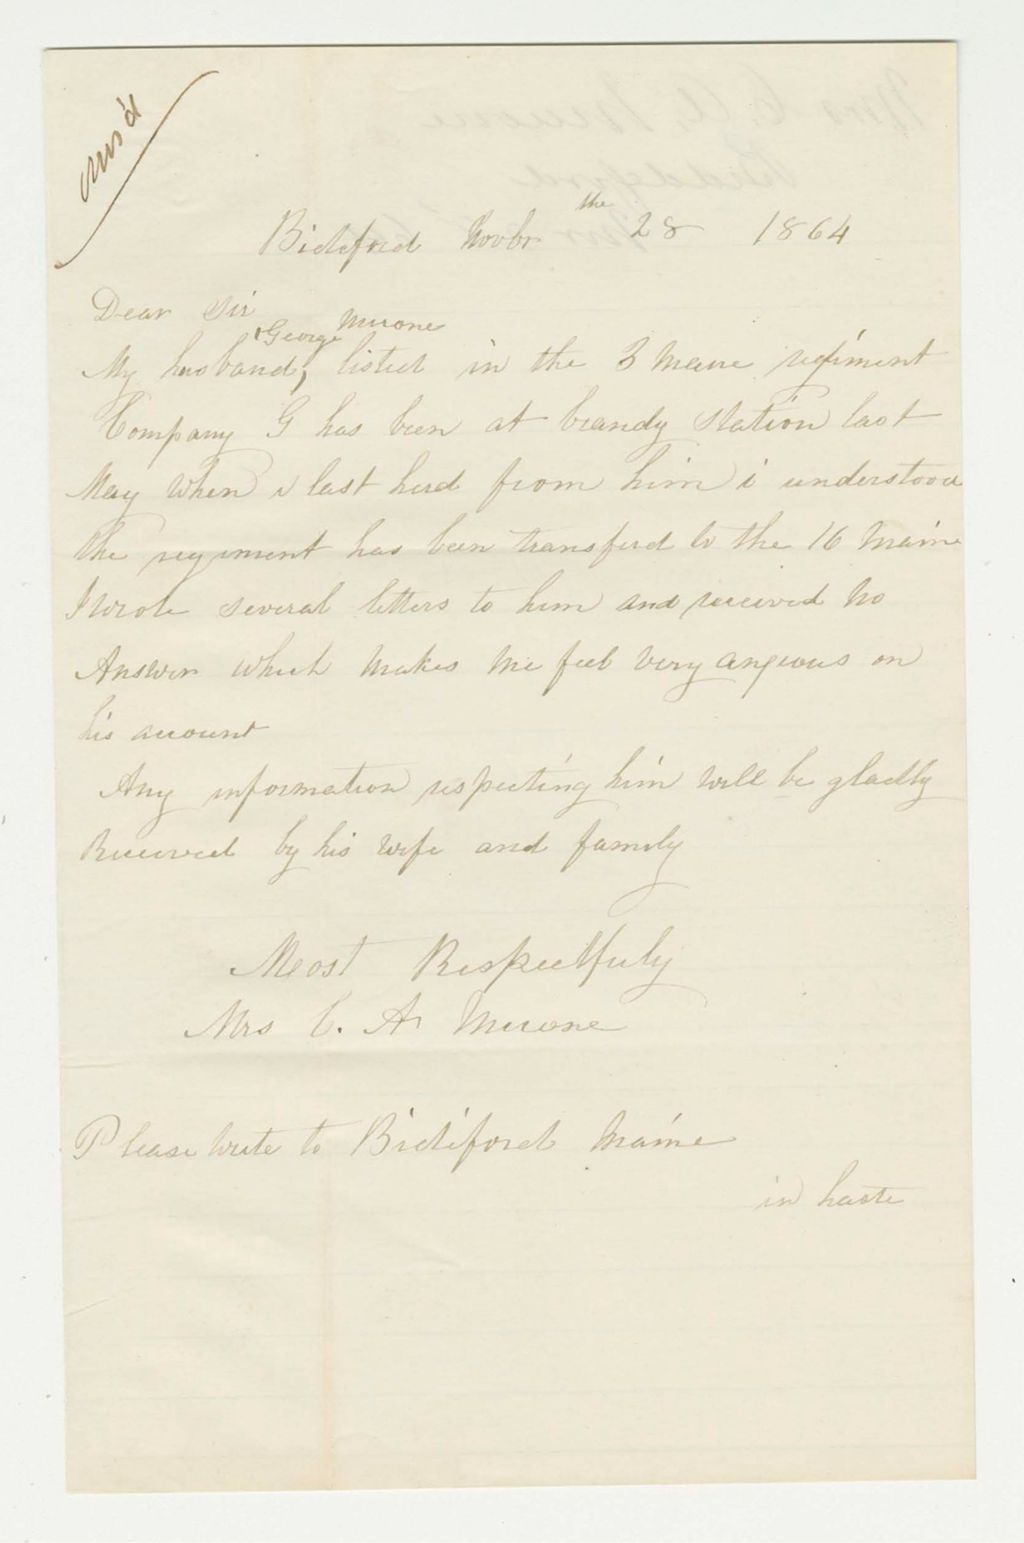 ans'd
Bideford Novbr the 28 1864
Dear Sir
George Murone
My husband, listed in the 3 Maine regiment
Company G has been at brandy Station last
May when i last herd from him i understood
the regiment has been transferd to the 16 Maine
I wrote several letters to him and received no
Answer which makes me feel very anxious on
his account
Any information respecting him will be gladly
Received by his wife and family
Most Respectfuly
Mrs C. A. Murone
Please write to Bideford Maine
in haste